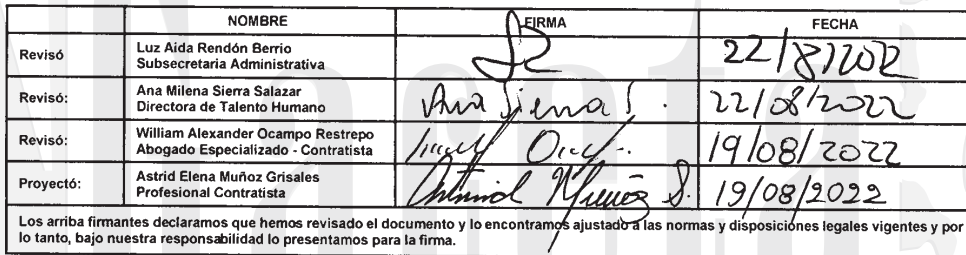 NOMBRE FIRMA FECHA
Revisó Luz Aida Rendón Berrio
Subsecretaria Administrativa 22/8/2022
Revisó: Ana Milena Sierra Salazar
Directora de Talento Humano Ana Sierra S. 22/08/2022
Revisó: William Alexander Ocampo Restrepo
Abogado Especializado - Contratista 19/08/2022
Proyectó: Astrid Elena Muñoz Grisales
Profesional Contratista Astrid Muñoz G. 19/08/2022
Los arriba firmantes declaramos que hemos revisado el documento y lo encontramos ajustado a las normas y disposiciones legales vigentes y por
lo tanto, bajo nuestra responsabilidad lo presentamos para la firma.